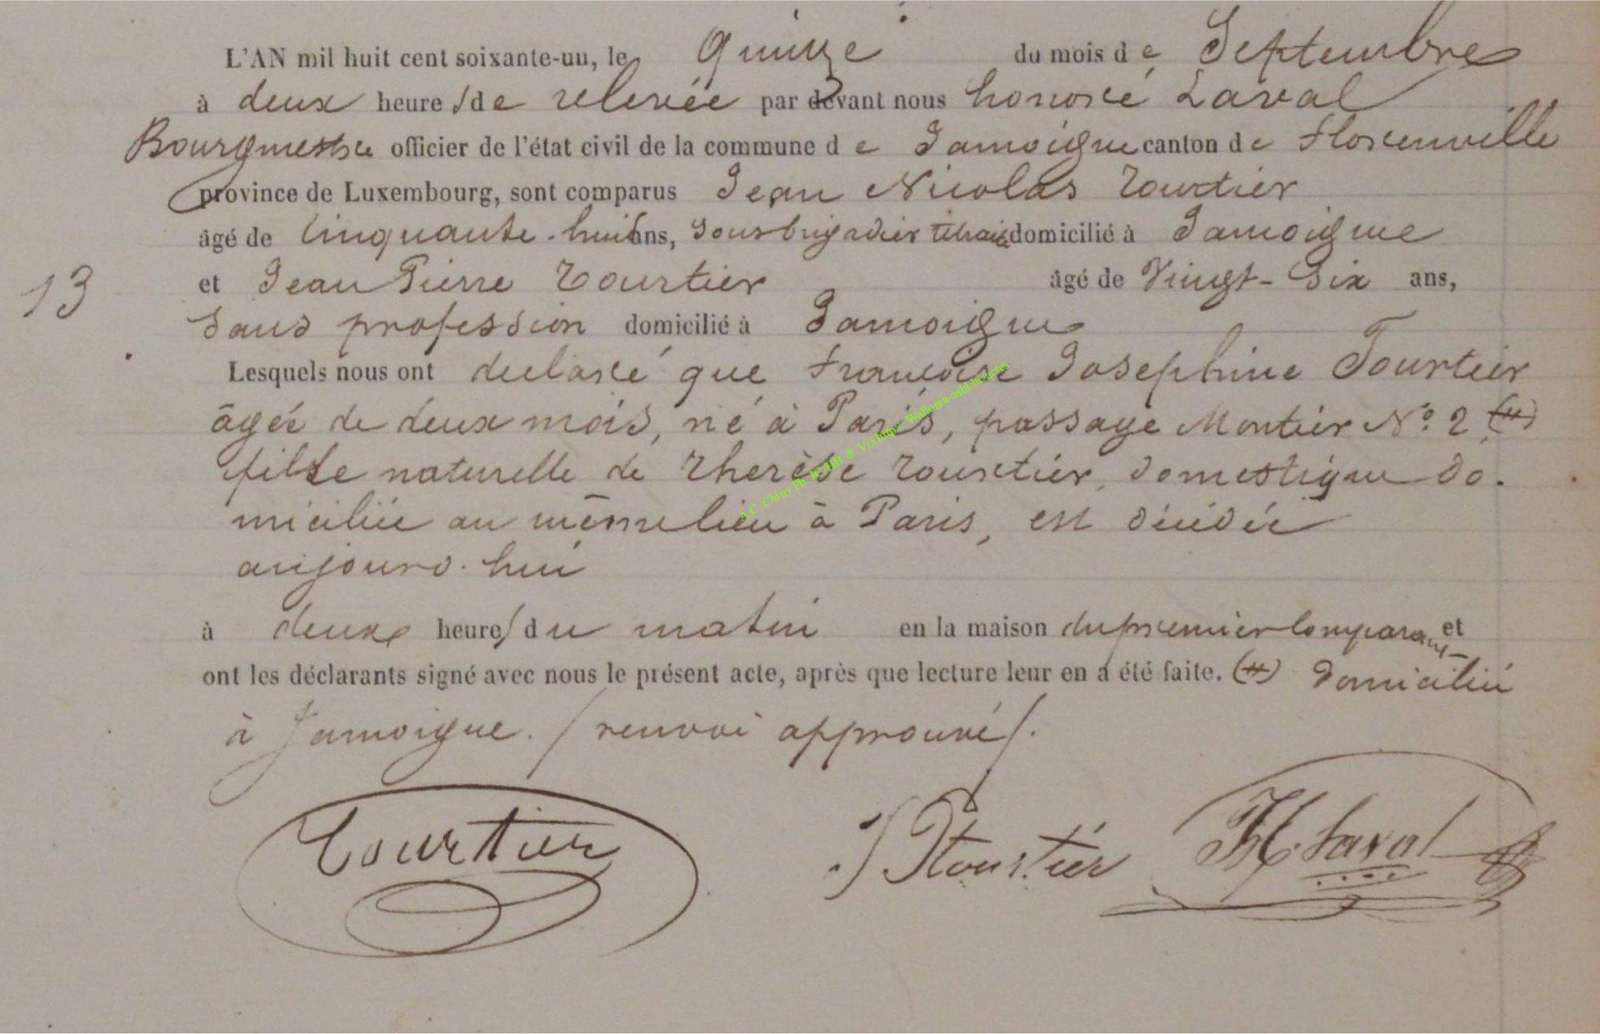 L'AN mil huit cent soixante-un, le quinze du mois de Septembre
à deux heures de relevée par devant nous honoré Laval
Bourgmestre officier de l'état civil de la commune de Jamoigne canton de Florenville
province de Luxembourg, sont comparus Jean Nicolas Tourtier
âgé de Cinquante-huit ans, Sousbrigadier domicilié à Jamoigne
13 et Jean Pierre Tourtier âgé de Vingt-Six ans,
Sans profession domicilié à Jamoigne
Lesquels nous ont declaré que Françoise Josephine Tourtier
âgée de deux mois, né à Paris, passage Montier N° 2 (#)
fille naturelle de Therèse Tourtier, domestique do-
miciliée au même lieu à Paris, est décédée
aujourd'hui
à deux heures du matin en la maison du premier Comparant et
ont les déclarants signé avec nous le présent acte, après que lecture leur en a été faite. (#) domicilié
à Jamoigne. / renvoi approuvé /.
Tourtier JPtourtiér H. Laval